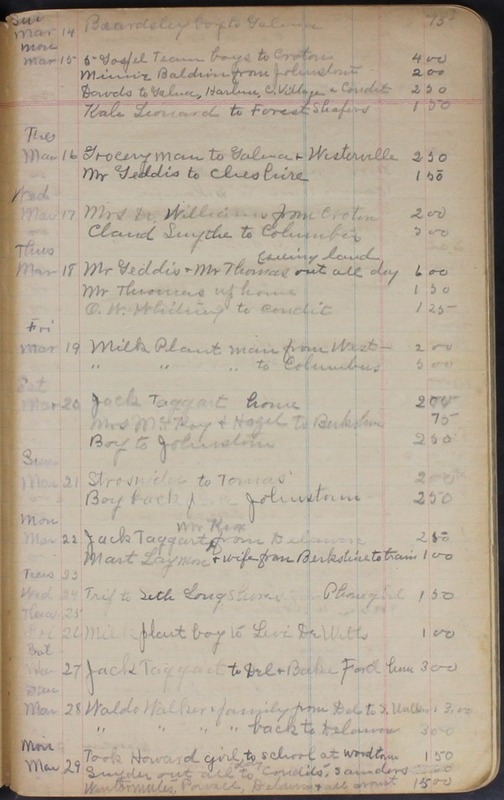 Sun
Mar 14 Beardsley boy to Galena 75
Mon
Mar 15 5 Gospel Team boys to Croton 4 00
Minnie Baldwin from Johnstown 2 00
Dowds to Galena, Harlem, C. Village & Condit 2 50
Kale Leonard to Forest Shafers 1 50
Tues
Mar 16 Grocery man to Galena & Westerville 2 50
Mr Geddis to Cheshire 1 50
Wed
Mar 17 Mrs Dr. Williams from Croton 2 00
Claud Smythe to Columbus 3 00
Thurs
seeing land
Mar 18 Mr Geddis & Mr Thomas out all day 6 00
Mr Thomas up home 1 50
O. W. Whitney to Condit 1 25
Fri
Mar 19 Milk Plant man from West- 2 00
" " " to Columbus 3 00
Sat
Mar 20 Jack Taggart home 2 00
Mrs McKay & Hazel to Berkshire 75
Boy to Johnstown 2 50
Sun
Mar 21 to Tomas' 2 00
Boy back from Johnstown 2 50
Mon
Mr
Mar 22 Jack Taggart from Delaware 2 50
Mart Laymon & wife from Berkshire to train 1 00
Tues 23
Wed 24 Trip to Seth Long 1 50
Thur 25
Fri 26 Milk plant boy to Levi DeWitts 1 00
Sat
Mar 27 Jack Taggart to Del & Bake Ford home 3 00
Sun
Mar 28 Waldo Walker & family from Del to S. Walkers 3 00
" " " " back to Delaware 3 00
Mon
Mar 29 Took Howard girl to school at 1 50
Snyder out all to Condits, Saunders
Delaware & all around 15 00